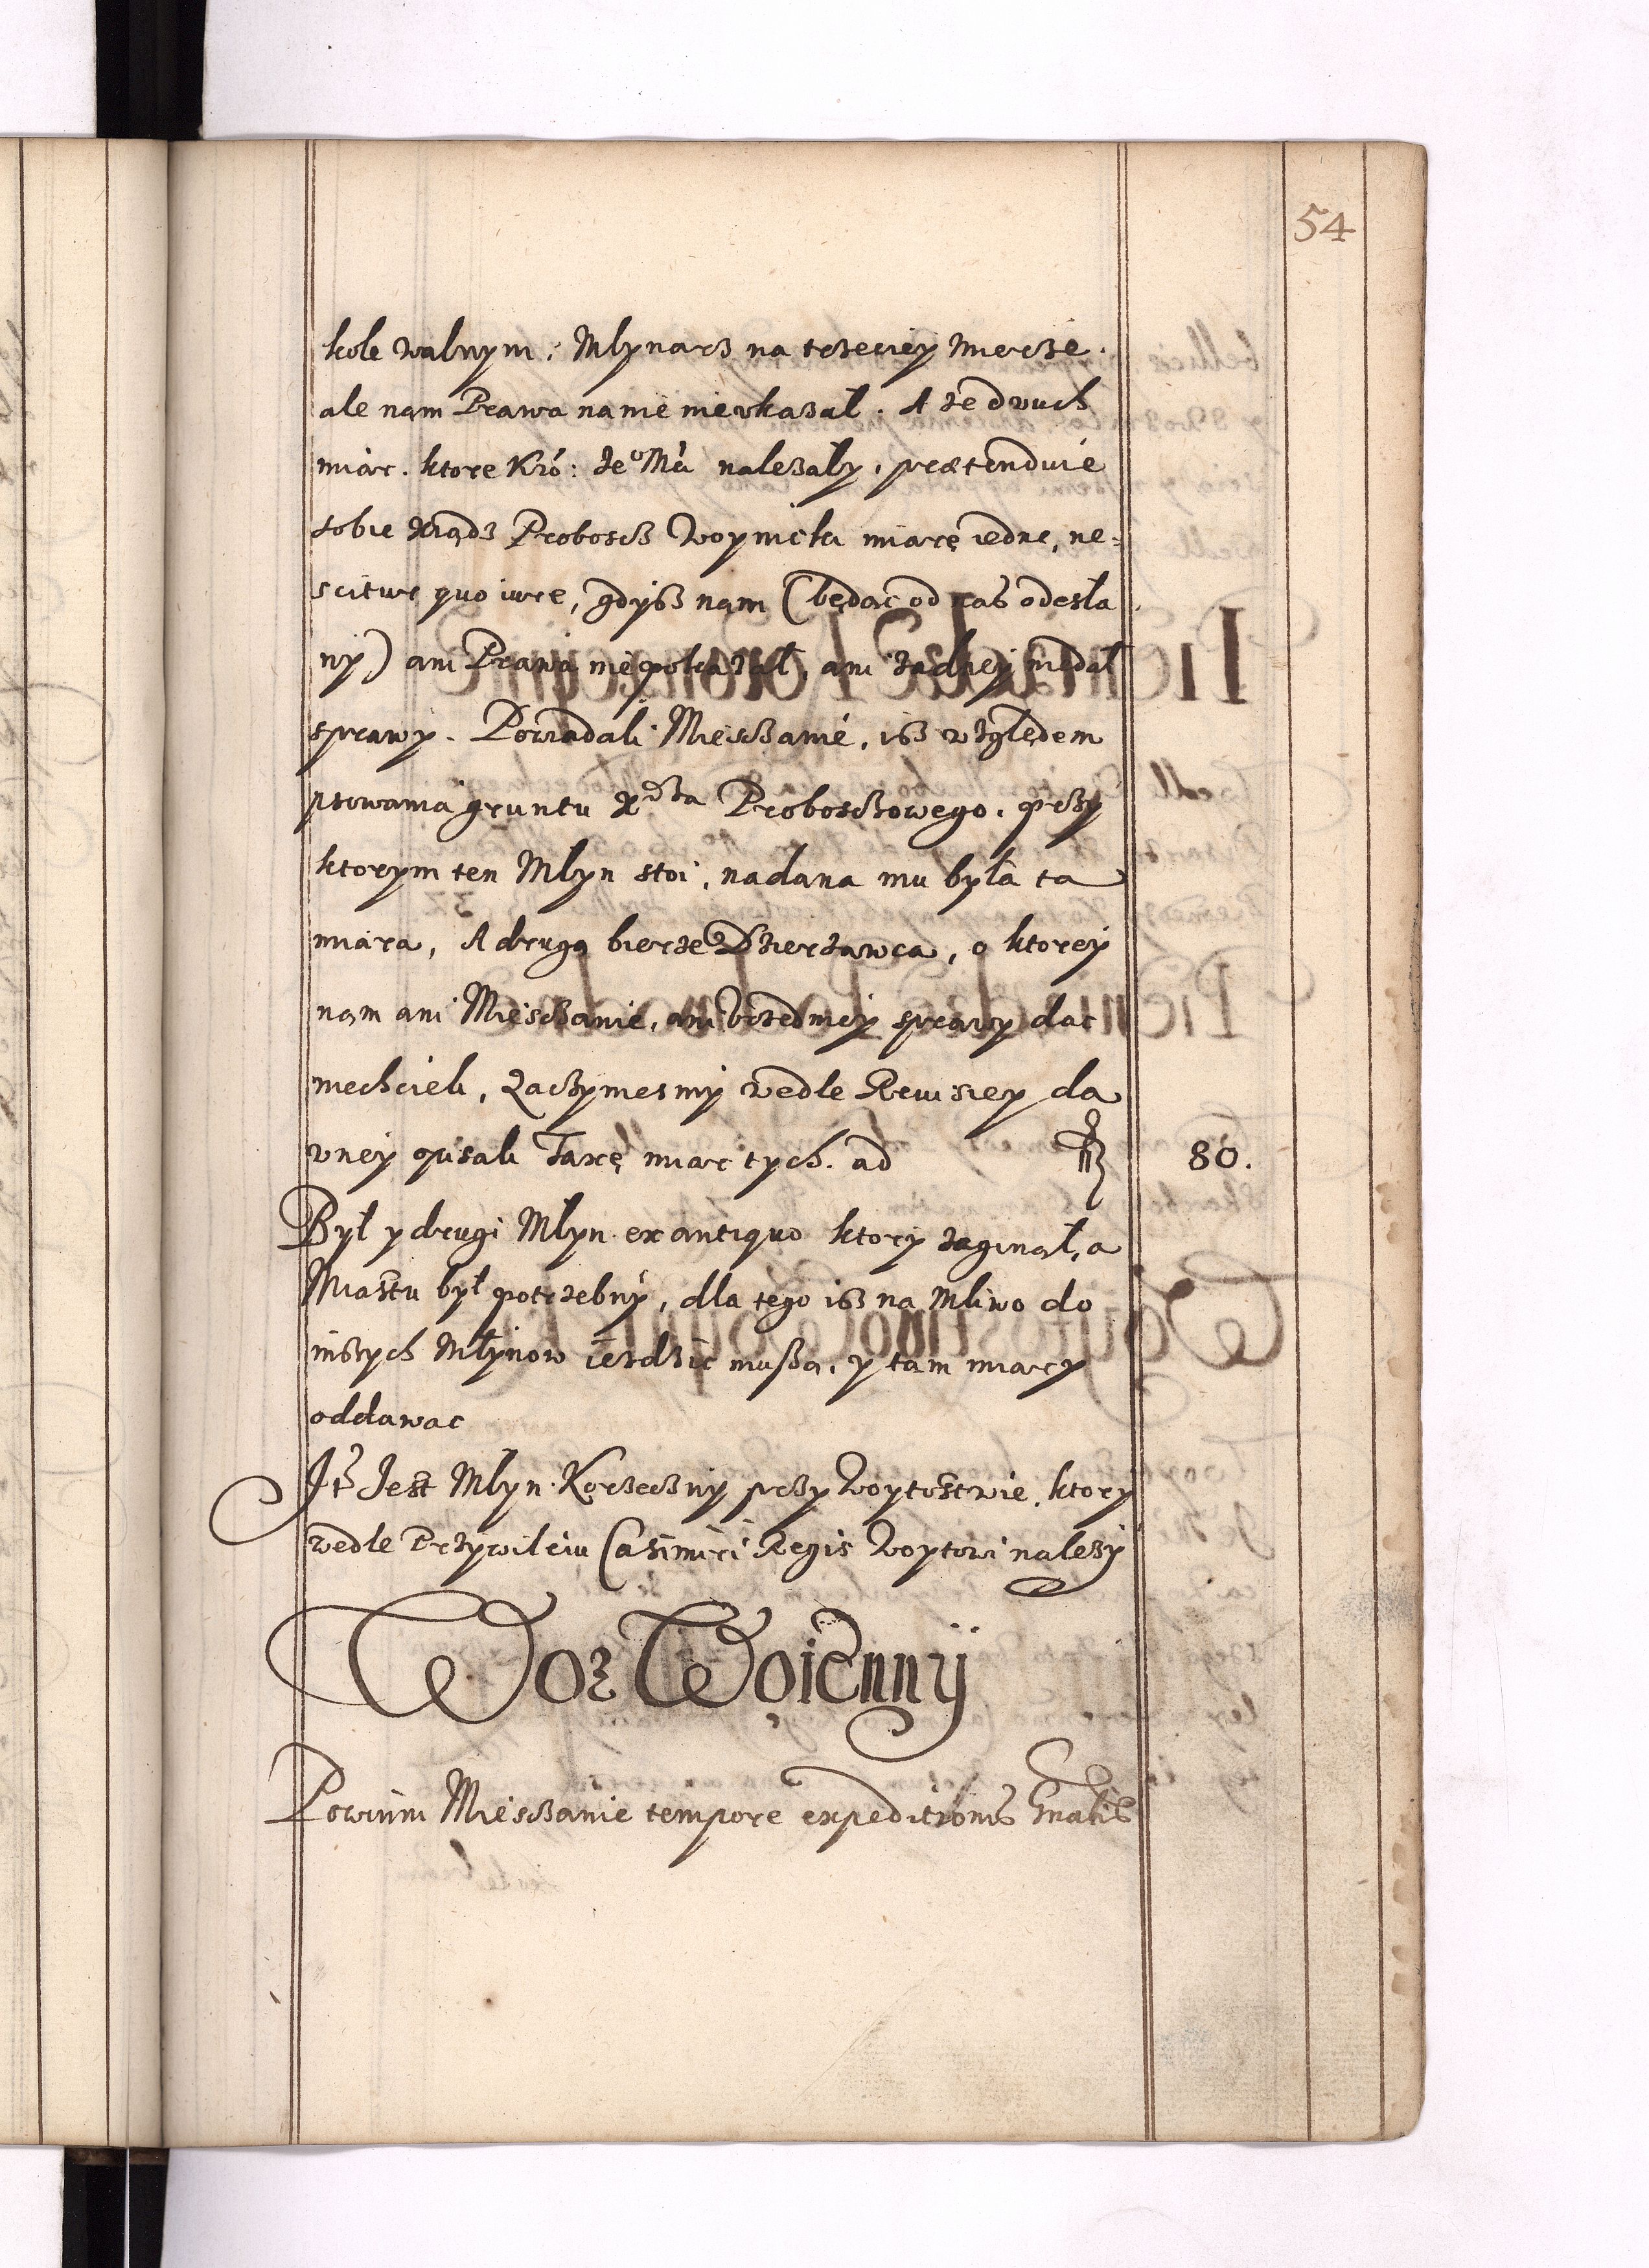 54
kole walnym, Młynarz na trzeciey mierze.
ale nąm Prawa na nie nieukazał. A że dwuch
miar. ktore Kró: Jeº Mći nalezały, prætenduie
sobie Xiądz Proboscz Woynicki miarę iedne, ne=
scitur quo iure, gdysz nąm (będąc od nas odesła
ny) ani Prawa niepokazał, ani żadney niedał
sprawy. Powiadali Miesczanie, isz względem
psowania gruntu Xdza Probosczowego, przy
ktorym ten Młyn stoi, nadana mu była ta
miara, A drugą bierze Dzierżawca, o ktorey
nąm ani Miesczanie, ani Vrzędnicy sprawy dac
niechcieli, Zaczymesmy wedle Reuisiey da
wney opisali Taxę miar tych. ad fl 80.
Był y drugi Młyn ex antiquo ktory zaginął, a
Miastu był potrzebny, dla tego isz na Mliwo do
inszych Młynow iezdzic muszą, y tam miary
oddawac
Jt Jest Młyn Korzeczny przy Woytostwie, ktory
wedle Przywileiu Casimiri Regis Woytowi nalezy
Woz Woienny
Powinni Miesczanie tempore expeditionis Gnalis